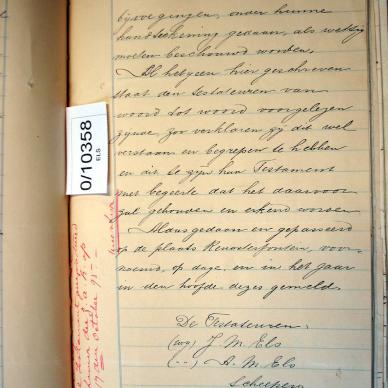 bijvoegingen, onder hunne
handteekening gedaan, als wettig
moeten beschouwd worden.
Al hetgeen hier geschreven
staat den testateuren van
woord tot woord voorgelezen
zijnde, zoo verklaren zij dit wel
verstaan en begrepen te hebben
en dit te zijn hun Testament
met begeerte dat het daarvoor
gal gehouden en erkend worden
Aldus gedaan en gepasseerd
op de plaats Renosterfontein, voor-
noemd, op dage, en in het jaar
in den hoofde dezes gemeld.
De Testateuren.
(wg) J M Els
(--) A. M. Els
Scheepers
0/10358
ELS
October 95